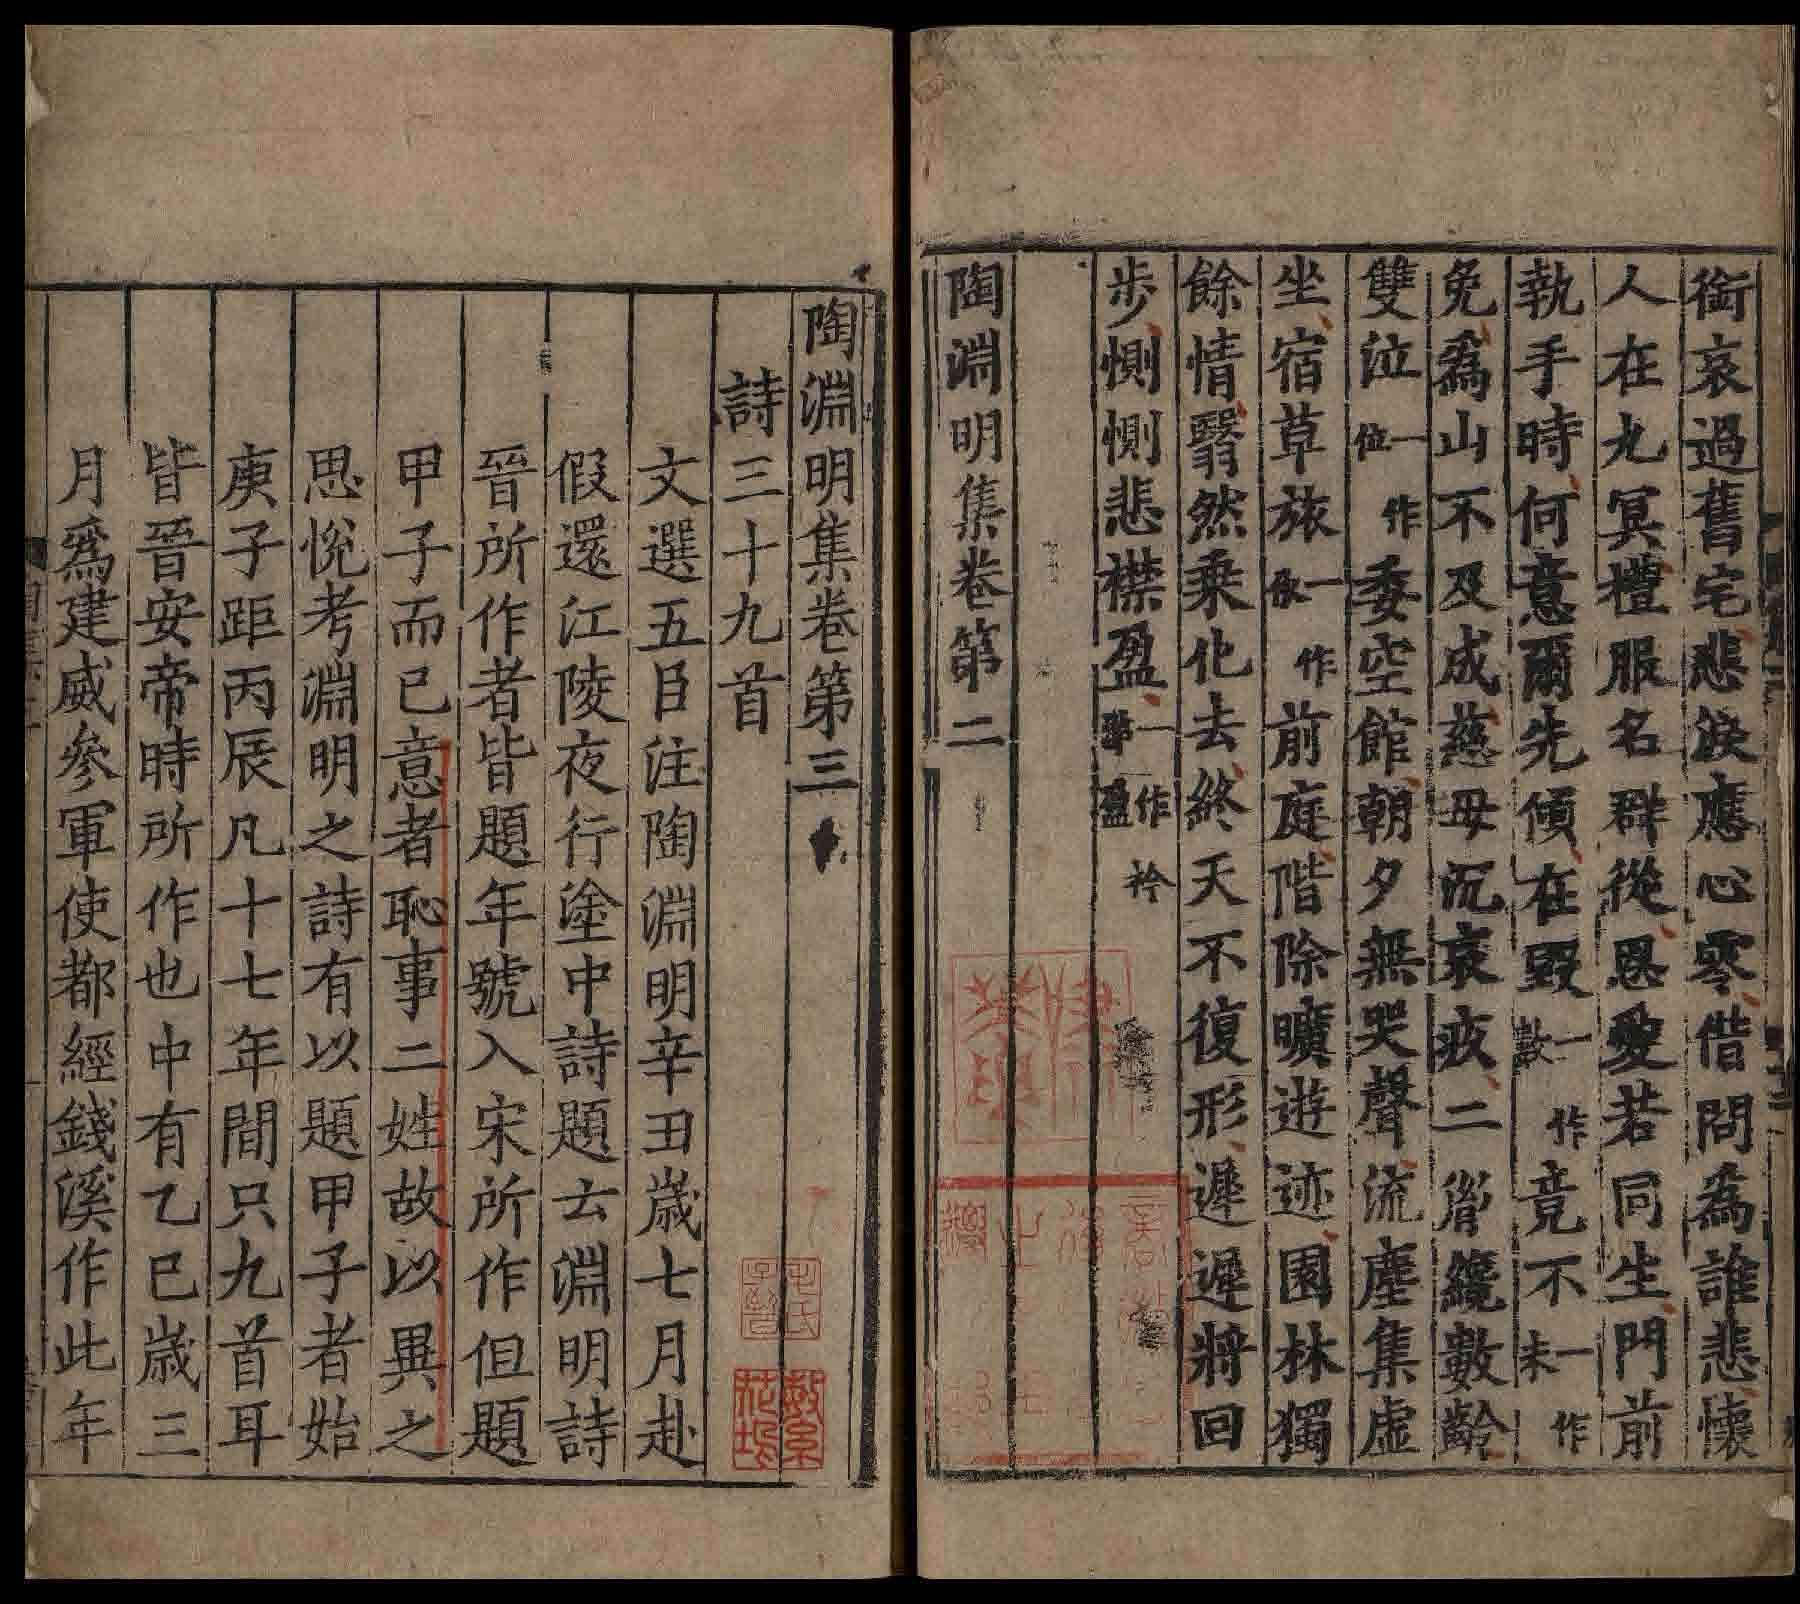 銜哀過舊宅悲淚應心零借問為誰悲懷
人在九冥禮服名群從恩愛若同生門前
執手時何意爾先傾在毀一作數竟不一作未
免為山不及成慈母沉哀疚二胤纔數齡
雙泣一作位委空館朝夕無哭聲流塵集虛
坐宿草旅一作依前庭階除曠遊迹園林獨
餘情翳然乗化去終天不復形遲遲將回
步惻惻悲襟盈一作衿涕盈
陶淵明集卷第二
陶淵明集卷第三
詩三十九首
文選五臣注陶淵明辛丑嵗七月赴
假還江陵夜行塗中詩題云淵明詩
晉所作者皆題年號入宋所作但題
甲子而已意者恥事二姓故以異之
思悅考淵明之詩有以題甲子者始
庚子距丙辰凡十七年間只九首耳
皆晉安帝時所作也中有乙巳嵗三
月為建威參軍使都經錢溪作此年
毛氏子晉